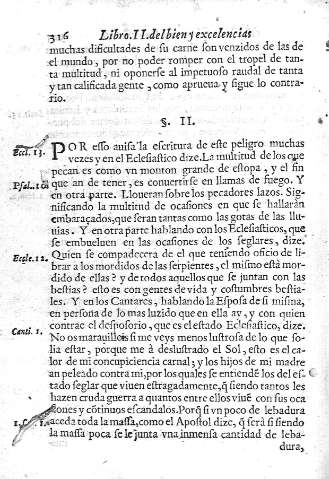 316 Libro. II. del bien y excelencias
muchas dificultades de su carne son venzidos de las de
el mundo, por no poder romper con el tropel de tan-
ta multitud, ni oponerse al impetuoso raudal de tanta
y tan calificada gente, como aprueua y sigue lo contra-
rio.
§. II.
Eccl. 13. POR esso auisa la escritura de este peligro muchas
vezes y en el Eclesiastico dize. La multitud de los que
pecan es como vn monton grande de estopa, y el fin
Psal. 10 que an de tener, es conuertirse en llamas de fuego. Y
en otra parte. Lloueran sobre los pecadores lazos. Sig-
nificando la multitud de ocasiones en que se hallarán
embaraçados, que seran tantas como las gotas de las llu-
uias. Y en otra parte hablando con los Eclesiasticos, que
se embueluen en las ocasiones de los seglares, dize.
Eccle. 12. Quien se compadecera de el que teniendo oficio de li-
brar a los mordidos de las serpientes, el mismo está mor-
dido de ellas? y de todos aquellos que se juntan con las
bestias? esto es con gentes de vida y costumbres bestia-
les. Y en los Cantares, hablando la Esposa de si misma,
en persona de lo mas luzido que en ella ay, y con quien
Canti. 1. contrae el desposorio, que es el estado Eclesiastico, dize.
No os marauilleis si me veys menos lustrosa de lo que so-
lia estar, porque me à deslustrado el Sol, esto es el ca-
lor de mi concupiciencia carnal; y los hijos de mi madre
an peleado contra mi, por los quales se entiendē los del es-
tado seglar que viuen estragadamente, q̃ siendo tantos les
hazen cruda guerra a quantos entre ellos viuē con sus oca
siones y cōtinuos escandalos. Porq̃ si vn poco de lebadura
aceda toda la massa, como el Apostol dize, q̃ será si siendo
la massa poca se le junta vna inmensa cantidad de leba-
dura,